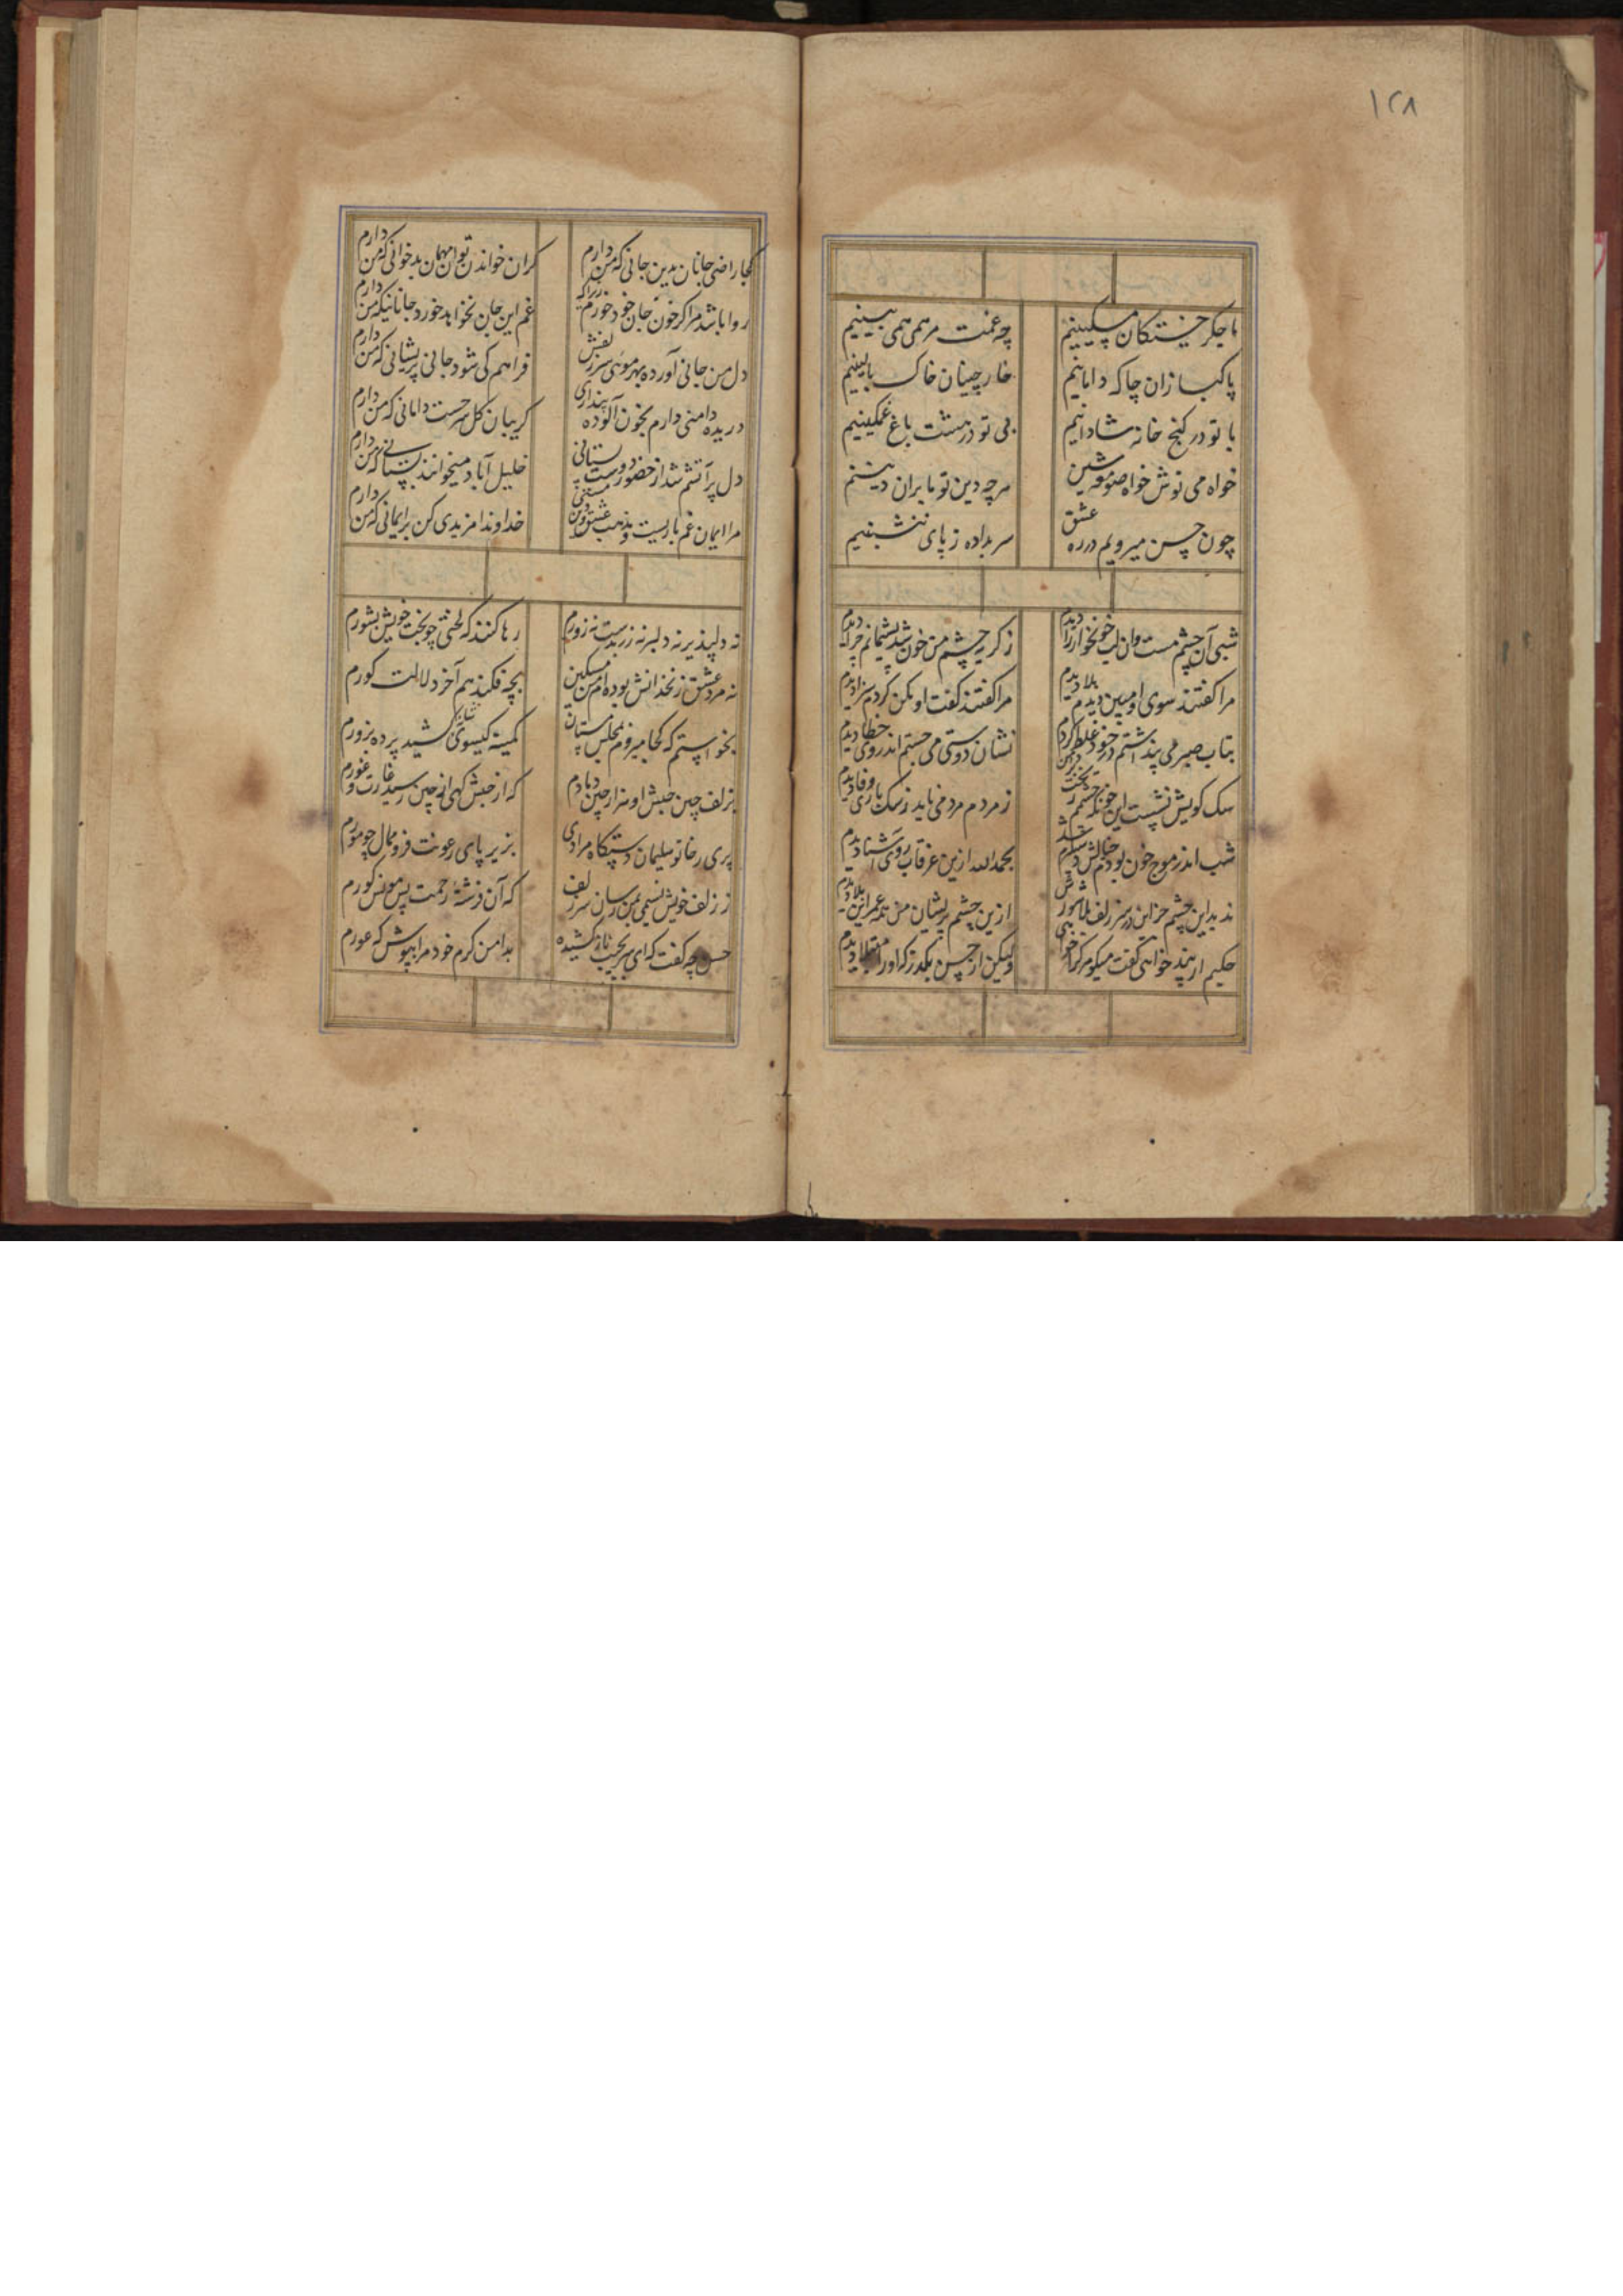 ۱۲۸
ما جگر خستگان مسکینیم
چه غمت مرهمی همی بینیم
پاکبازان چاک دامانیم
خار چینان خاک بالینیم
با تو در کنج خانه شادانیم
بی تو در هشت باغ غمگینیم
خواه می نوش خواه صومعه شین
هرچه دین تو ما بران دینیم
چون حسن میرویم در ره عشق
سر بداده ز پای ننشینیم
شبی آن چشم مست وان لب خونخوار را دیدم
ز گریه چشم من خون شد پشیمانم چرا دیدم
مرا گفتند سوی او مبین دیدم بلا دیدم
مرا گفتند گفت او مکن کردم سزا دیدم
بتاب صبر می پنداشتم در خود غلط کردم
نشان دوستی می جستم اندر وی خطا دیدم
سگ کویش نشست این خونکه چشمم ریخت
ز مردم مردمی ناید ز سگ باری وفا دیدم
شب اندر موج خون بودم خیالش شد
بحمدالله ازین غرقاب روی آشنا دیدم
ندید این چشم جز این در سر زلف بلاجویش
ازین چشم پریشان من همه عمر این بلا دیدم
حکیم ار پند خواهی گفت میگو مر مرا
ولیکن از حسن بگذر که او را مبتلا دیدم
کجا راضی جانان بدین جانی که من دارم
گران خواندن توان مهمان بدخوانی که من دارم
روا باشد مرا گر خون جان خود خورم زیرا که
غم این جان نخواهد خورد جانانیکه من دارم
دل من جانی آورده بهر موئی سر زلفش
فراهم کی شود جانی پریشانی که من دارم
دریده دامنی دارم بخون آلوده پنداری
گریبان گل سرخست دامانی که من دارم
دل پر آتشم شد از حضور دوست بستانی
خلیل آباد میخوانند بستانی که من دارم
مرا ایمان غم یاریست و مذهب عشق و دین مستی
خداوندا مزیدی کن بر ایمانی که من دارم
نه دلپذیر نه دلبر نه زر بدست نه زورم
رها کنند که لختی چو بخت خویش بشورم
نه مرد عشق زنخدانش بوده ام من مسکین
بچه فکند هم آخر دلالت کورم
بخواستم که کجا میروم بمجلس مستان
کمینه گیسوی کشید پرده بزورم
بزلف چین حبش او هزار چین دادم
که از حبش گهی از چین رسید غارت و غورم
پری رخا تو سلیمان دستگاه مرادی
بزیر پای رعونت فرو ممال چو مورم
ز زلف خویش نسیمی بمن رسان سر زلف
که آن فرشته رحمت بس مونس گورم
حسن چه گفت که ای سر بجیب ناز کشیده
بدامن کرم خود مرا بپوش که عورم